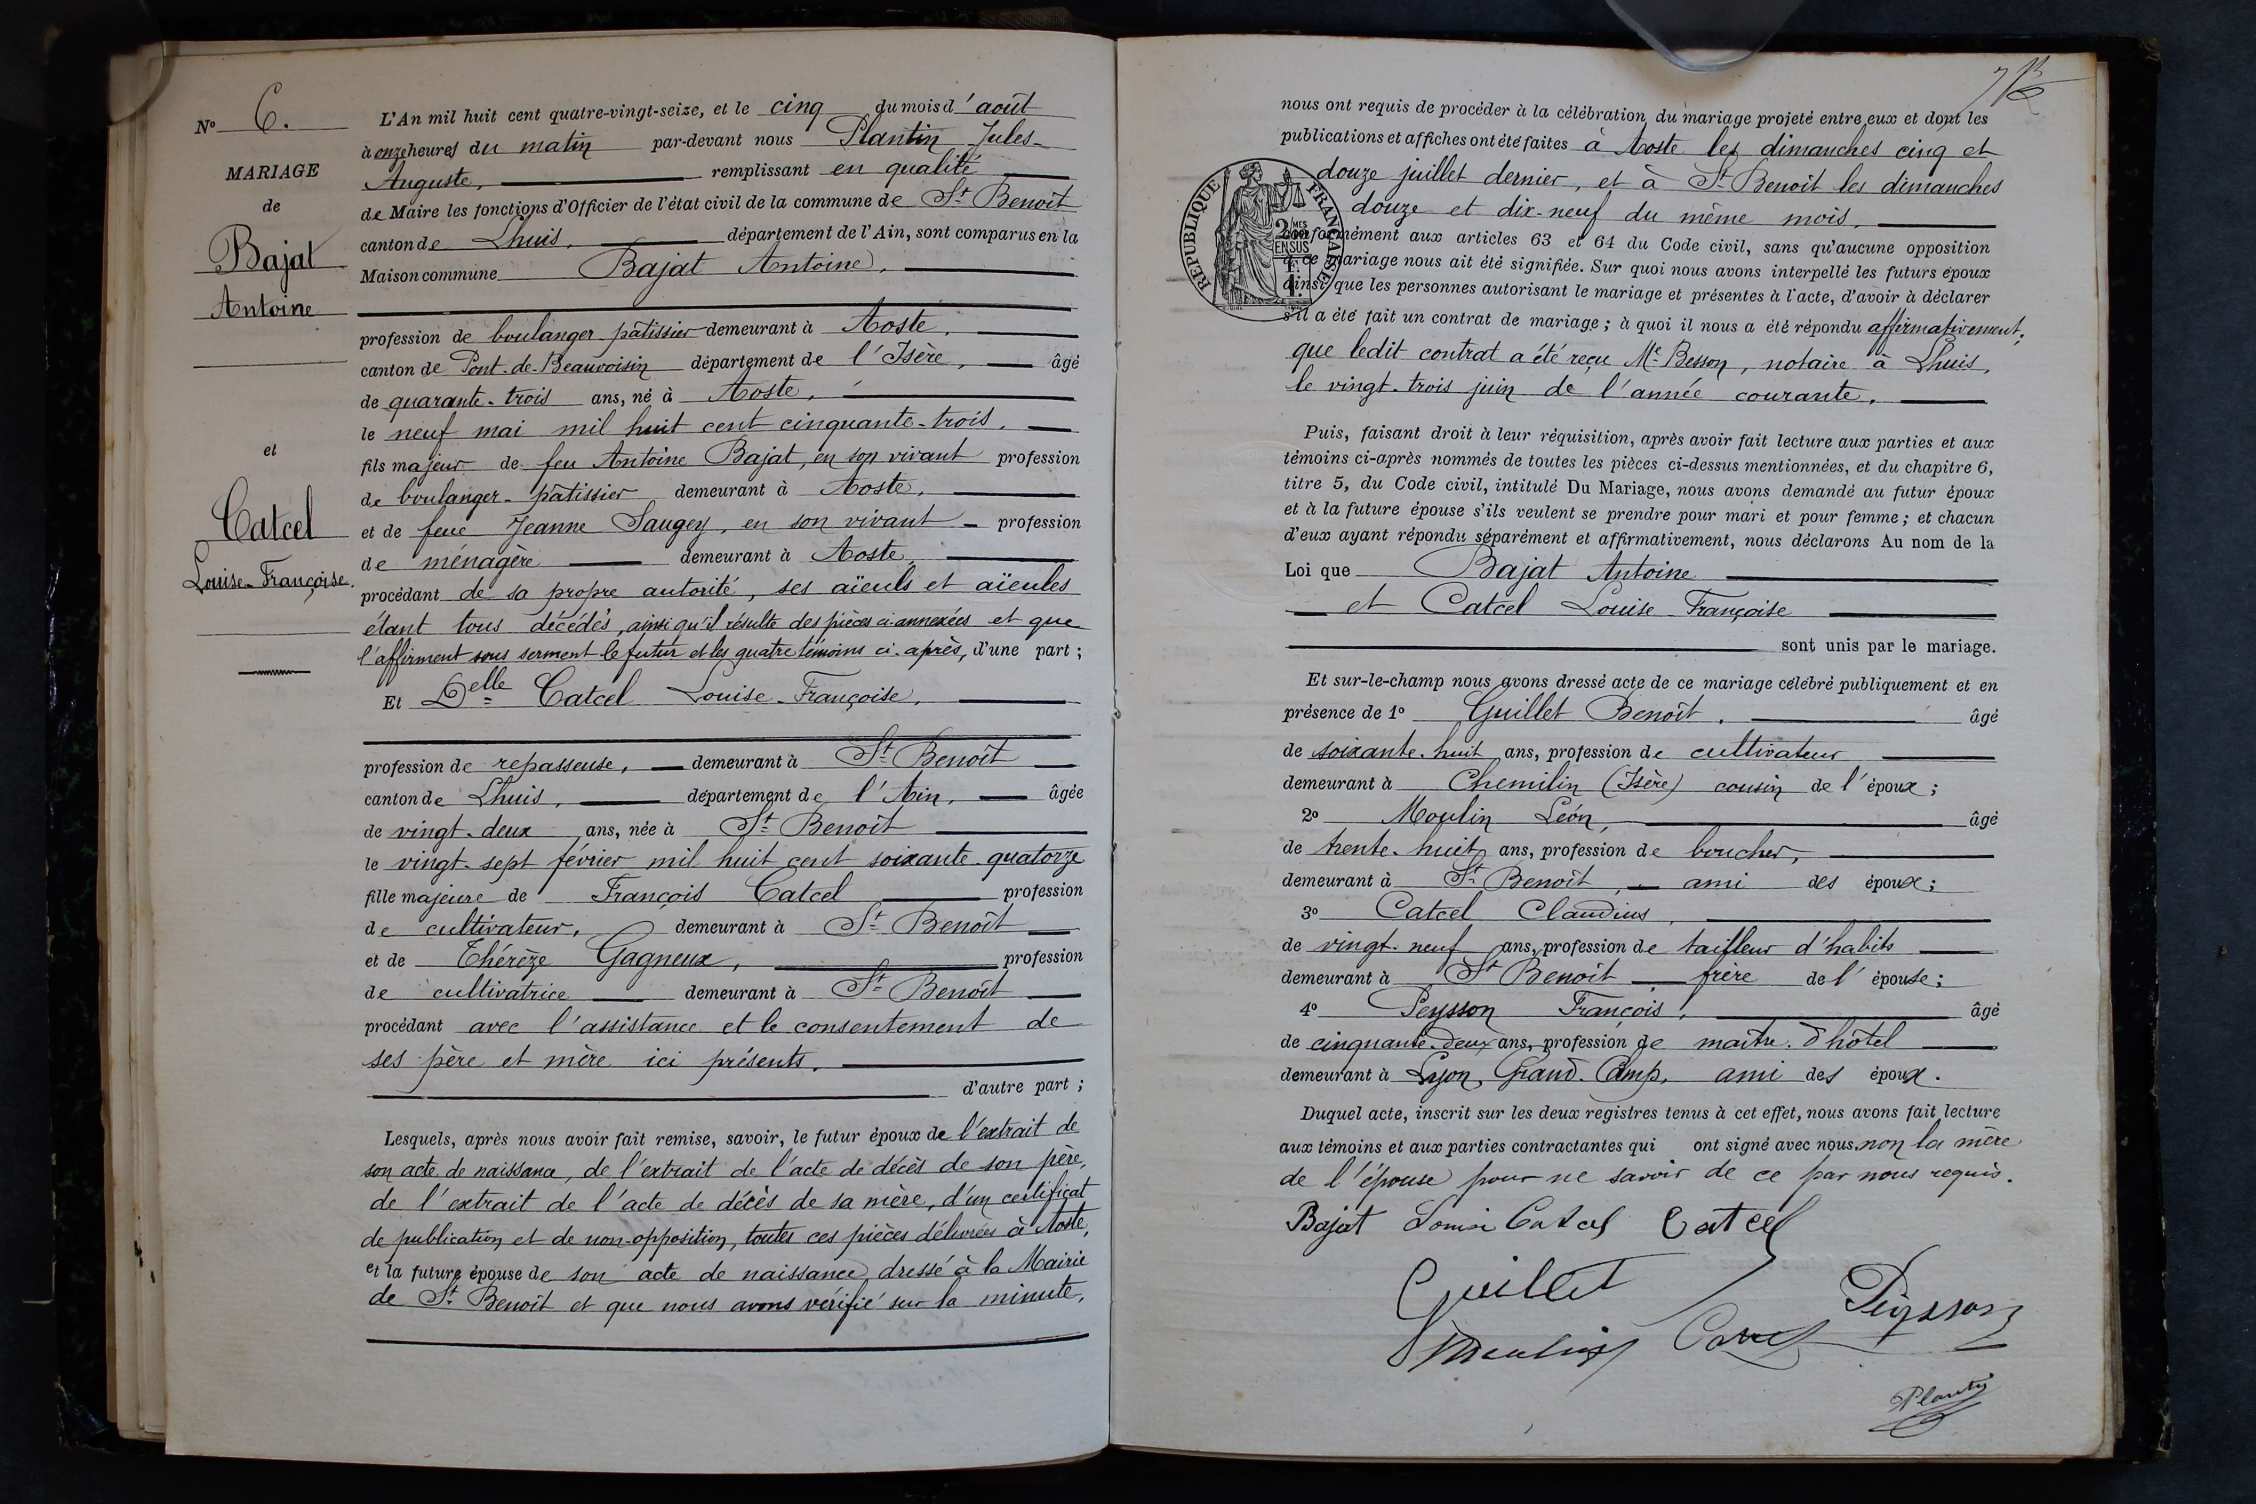 N° 6.
MARIAGE
de
Bajat
Antoine
et
Catcel
Louise-Françoise.
L'An mil huit cent quatre-vingt-seize, et le cinq du mois d'août
à onze heures du matin par-devant nous Plantin Jules-
Auguste, remplissant en qualité
de Maire les fonctions d'Officier de l'état civil de la commune de St Benoît
canton de Lhuis, département de l'Ain, sont comparus en la
Maison commune Bajat Antoine,
profession de boulanger-pâtissier demeurant à Aoste,
canton de Pont-de-Beauvoisin département de l'Isère, âgé
de quarante-trois ans, né à Aoste,
le neuf mai mil huit cent cinquante-trois,
fils majeur de feu Antoine Bajat, en son vivant profession
de boulanger-pâtissier demeurant à Aoste,
et de feue Jeanne Saugey, en son vivant profession
de ménagère demeurant à Aoste,
procédant de sa propre autorité, ses aïeuls et aïeules
étant tous décédés, ainsi qu'il résulte des pièces ci-annexées et que
l'affirment sous serment le futur et les quatre témoins ci-après, d'une part ;
Et Delle Catcel Louise-Françoise,
profession de repasseuse, demeurant à St Benoît
canton de Lhuis, département de l'Ain, âgée
de vingt-deux ans, née à St Benoît
le vingt-sept février mil huit cent soixante-quatorze
fille majeure de François Catcel profession
de cultivateur, demeurant à St Benoît
et de Thérèze Gagneux, profession
de cultivatrice demeurant à St Benoît
procédant avec l'assistance et le consentement de
ses père et mère ici présents,
d'autre part ;
Lesquels, après nous avoir fait remise, savoir, le futur époux de l'extrait de
son acte de naissance, de l'extrait de l'acte de décès de son père,
de l'extrait de l'acte de décès de sa mère, d'un certificat
de publication et de non-opposition, toutes ces pièces délivrées à Aoste,
et la future épouse de son acte de naissance, dressé à la Mairie
de St Benoît et que nous avons vérifié sur la minute,
nous ont requis de procéder à la célébration du mariage projeté entre eux et dont les
publications et affiches ont été faites à Aoste les dimanches cinq et
douze juillet dernier, et à St Benoît les dimanches
douze et dix-neuf du même mois,
RÉPUBLIQUE FRANÇAISE
2/MES
EN SUS
conformément aux articles 63 et 64 du Code civil, sans qu'aucune opposition
à ce mariage nous ait été signifiée. Sur quoi nous avons interpellé les futurs époux
ainsi que les personnes autorisant le mariage et présentes à l'acte, d'avoir à déclarer
s'il a été fait un contrat de mariage ; à quoi il nous a été répondu affirmativement,
que ledit contrat a été reçu Me Besson, notaire à Lhuis,
le vingt-trois juin de l'année courante,
Puis, faisant droit à leur réquisition, après avoir fait lecture aux parties et aux
témoins ci-après nommés de toutes les pièces ci-dessus mentionnées, et du chapitre 6,
titre 5, du Code civil, intitulé Du Mariage, nous avons demandé au futur époux
et à la future épouse s'ils veulent se prendre pour mari et pour femme ; et chacun
d'eux ayant répondu séparément et affirmativement, nous déclarons Au nom de la
Loi que Bajat Antoine
et Catcel Louise-Françoise
sont unis par le mariage.
Et sur-le-champ nous avons dressé acte de ce mariage célébré publiquement et en
présence de 1° Guillet Benoît, âgé
de soixante-huit ans, profession de cultivateur
demeurant à Chemilin (Isère) cousin de l'époux ;
2° Moulin Léon, âgé
de trente-huit ans, profession de boucher,
demeurant à St Benoît, ami des époux ;
3° Catcel Claudius,
de vingt-neuf ans, profession de tailleur d'habits
demeurant à St Benoît, frère de l'épouse ;
4° Peysson François, âgé
de cinquante-deux ans, profession de maître-d'hôtel
demeurant à Lyon, Grand-Camp, ami des époux.
Duquel acte, inscrit sur les deux registres tenus à cet effet, nous avons fait lecture
aux témoins et aux parties contractantes qui ont signé avec nous, non la mère
de l'épouse pour ne savoir de ce par nous requis.
Bajat Louise Catcel Catcel
Guillet
Peysson
Moulin Catcel
Plantin